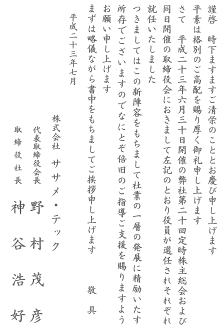 謹啓　時下ますますご清栄のこととお慶び申し上げます
平素は格別のご高配を賜り厚く御礼申し上げます
さて　平成二十三年六月三十日開催の弊社第二十回定時株主総会および
同日開催の取締役会におきまして左記のとおり役員が選任されそれぞれ
就任いたしました
つきましてはこの新陣容をもちまして社業の一層の発展に精励いたす
所存でございますのでなにとぞ倍旧のご指導ご支援を賜りますよう
お願い申し上げます
まずは略儀ながら書中をもちましてご挨拶申し上げます
敬　具
平成二十三年七月
株式会社　ササメ・テック
代表取締役会長　野　村　茂　彦
取締役社長　神　谷　浩　好